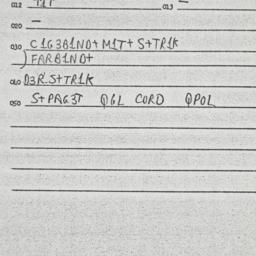 012 TIT 013 –
020 –
030 C1G3B1ND+ M1T+ S+TR1K
FARB1ND+
040 D3R.S+TR1K
050 S+PAG3T QGL CORD QPOL